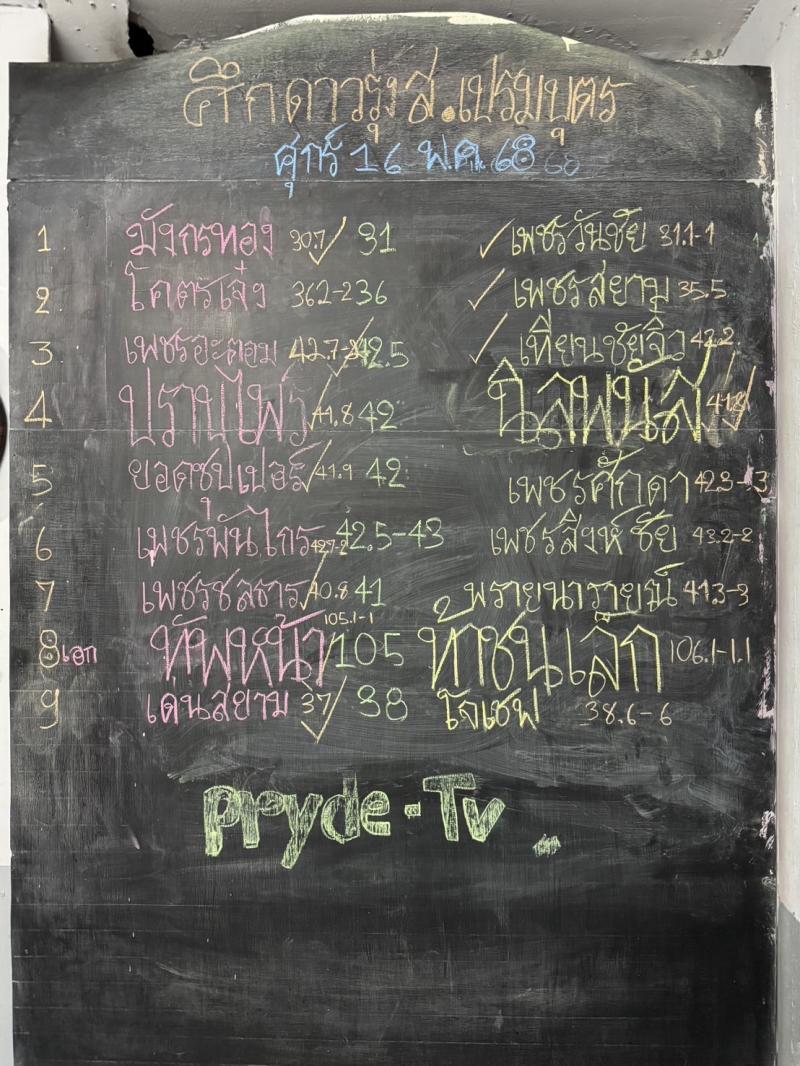 ศึกดาวรุ่งส.เปรมบุตร
ศุกร์ 16 พ.ค. 68 68
1 มังกรทอง 30.7 ✓ 31 ✓ เพชรวันชัย 31.1-1
2 โคตรเจ๋ง 36.2-2 36 ✓ เพชรสยาม 35.5
3 เพชรอะตอม 42.7-2 ✓ 42.5 ✓ เทียนชัยจิ๋ว 42.2
4 ปราบไพร ✓ 41.8 42 นิลพนัส 41.8 ✓
5 ยอดซุปเปอร์ ✓ 41.9 42 เพชรศักดา 42.3-3
6 เพชรพันไกร 42.7-2 42.5-43 เพชรสิงห์ชัย 43.2-2
7 เพชรชลธาร ✓ 40.8 41 พรายนารายณ์ 41.3-3
8 เอก ทัพหน้า 105.1-1 ✓ 105 ท้าชนเล็ก 106.1-1.1
9 เด่นสยาม 37 ✓ 38 โจเซฟ 38.6-6
Pryde-TV